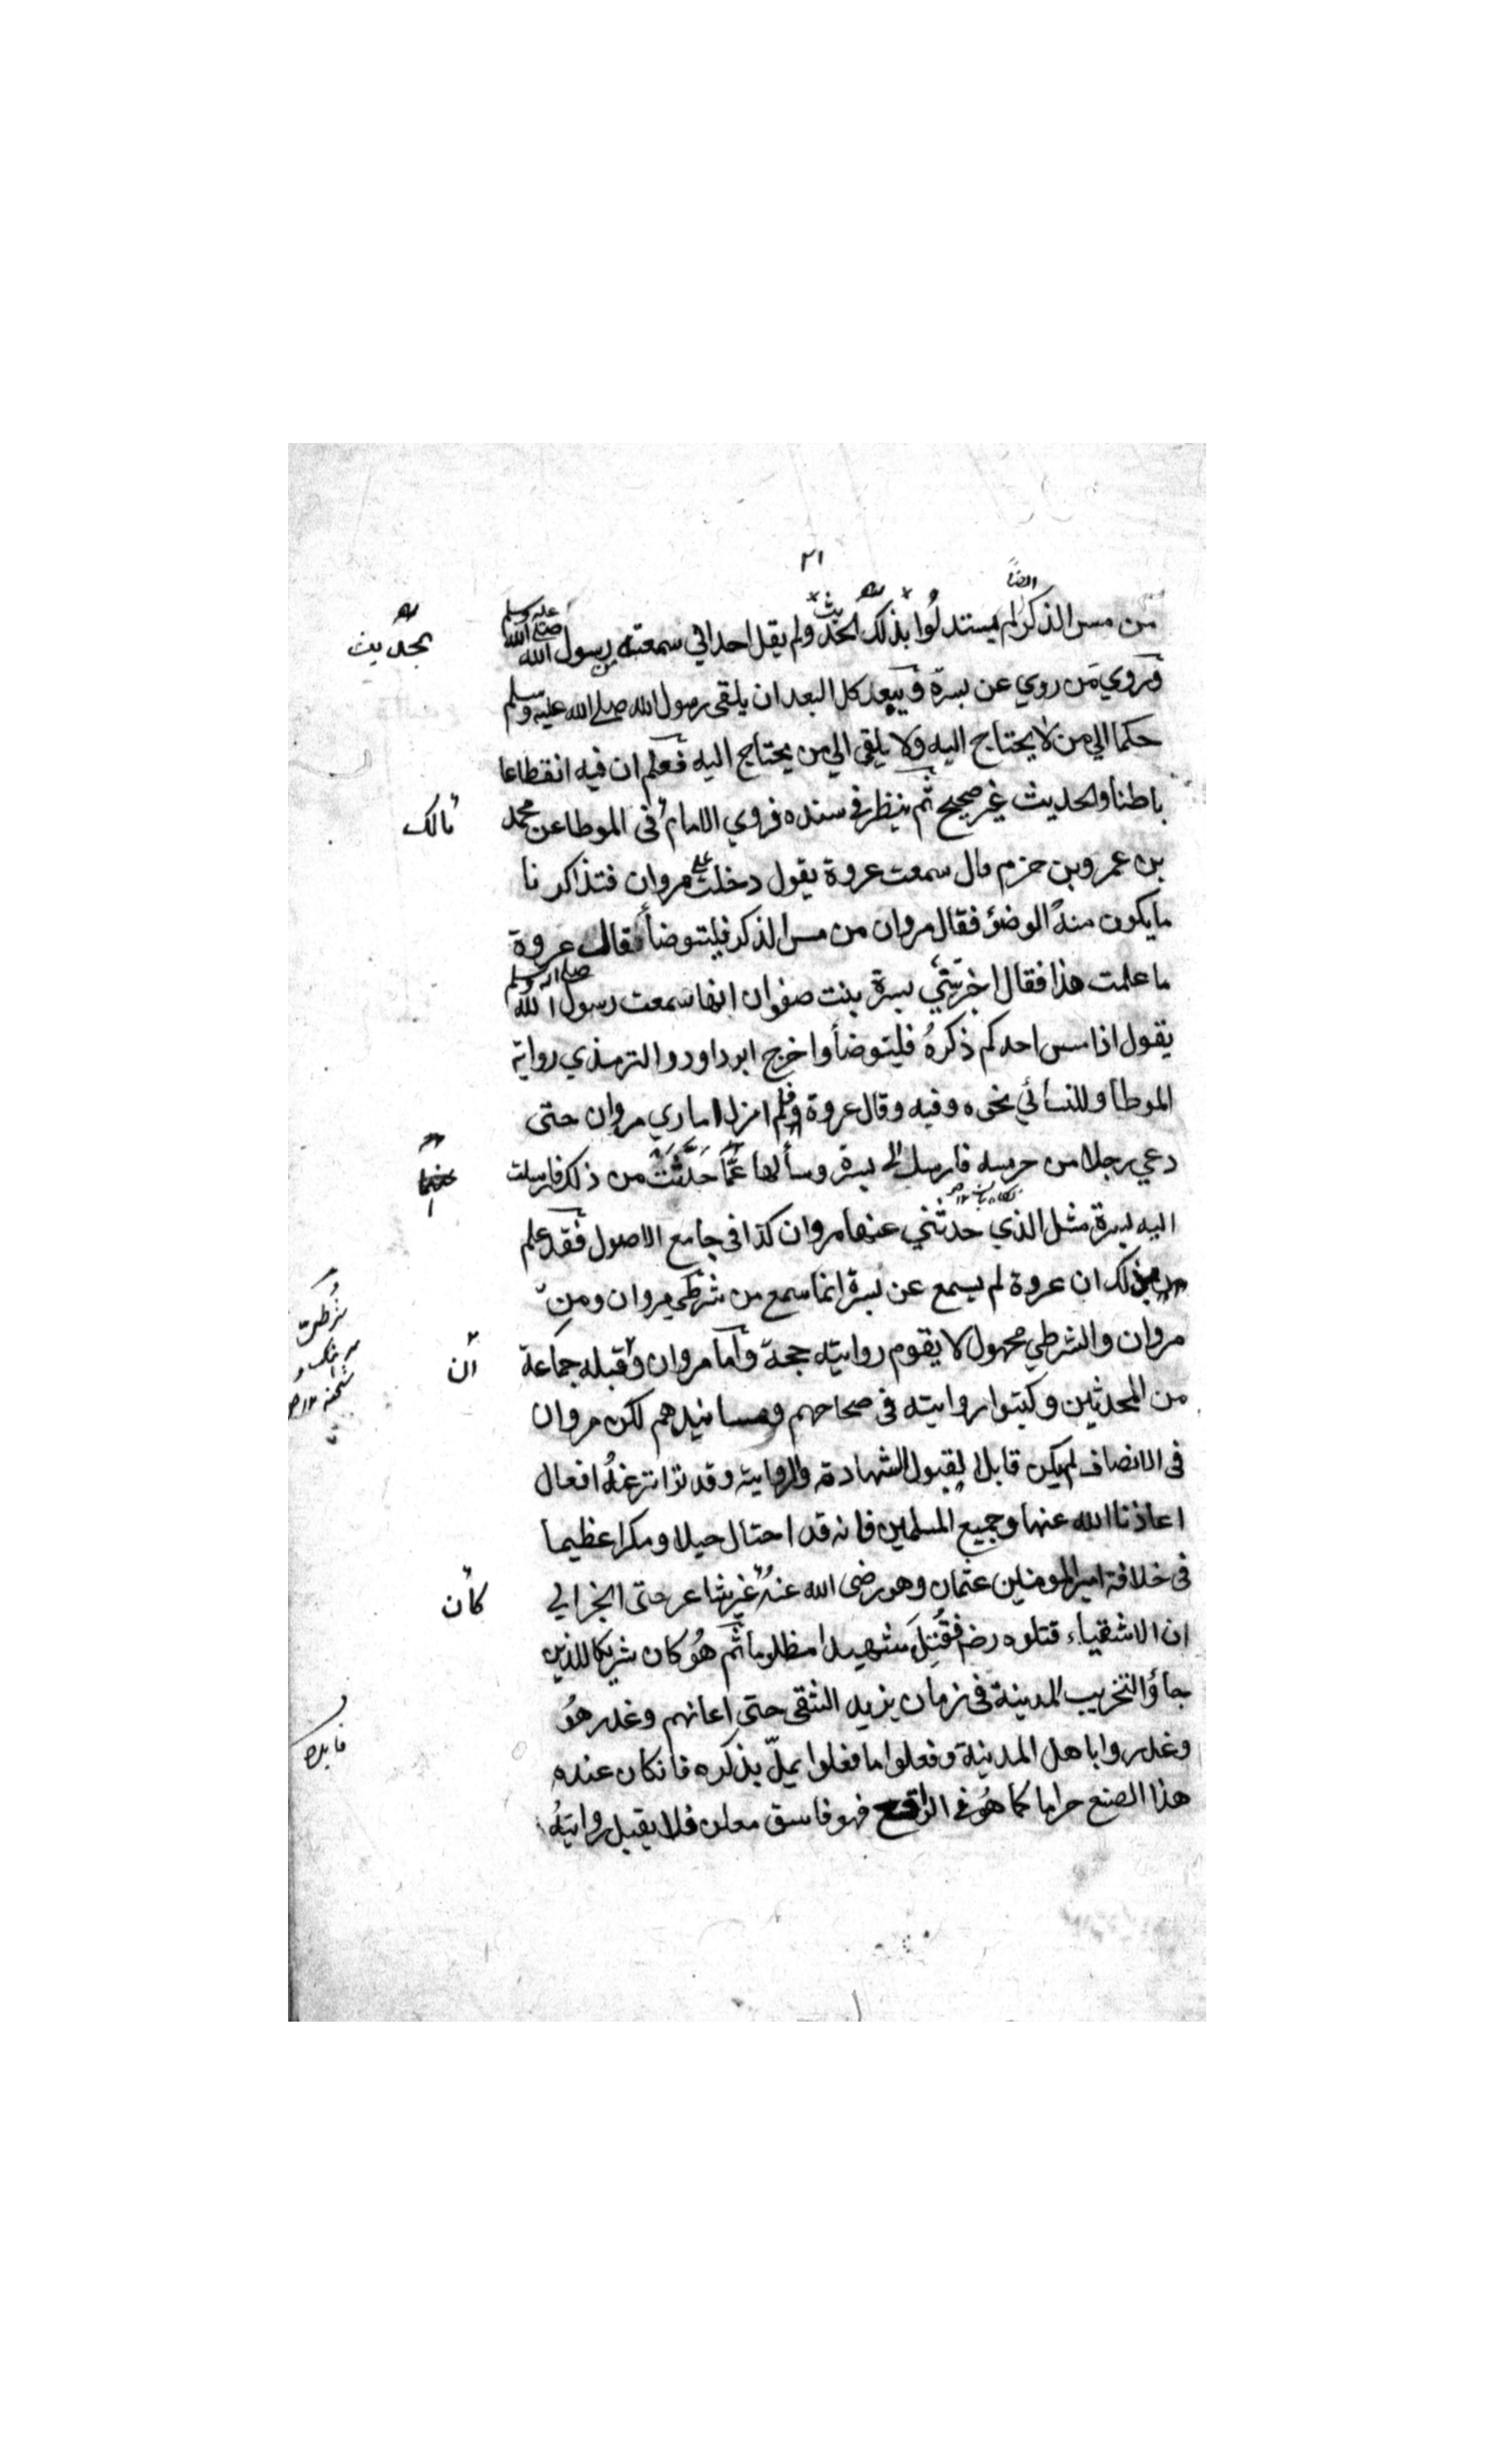 ٢١
من مس الذكر لم يستدلوا بذلك الحديث ولم يقل احد اني سمعته من رسول الله صلى الله عليه وسلم
بحديث
ويروي من روي عن بسرة ويبعد كل البعد ان يلقى رسول الله صلى الله عليه وسلم
حكما الي من لا يحتاج اليه ولا يلقى الي من يحتاج اليه فعلم ان فيه انقطاعا
باطنا والحديث غير صحيح ثم ينظر في سنده فروي الامام في الموطا عن محمد
مالك
بن عمرو بن حزم قال سمعت عروة يقول دخلت على مروان فتذاكرنا
ما يكون منه الوضؤ فقال مروان من مس الذكر فليتوضأ فقال عروة
ما علمت هذا فقال اخبرتني بسرة بنت صفوان انها سمعت رسول الله صلى الله عليه وسلم
يقول اذا مس احدكم ذكره فليتوضأ واخرج ابوداود والترمذي رواية
الموطا وللنسائي نحوه وفيه وقال عروة فلم ازل اماري مروان حتى
دعي رجلا من حرسه فارسل الى بسرة وسألها عما حدثت من ذلك فارسلت
اليه بسرة مثل الذي حدثني عنها مروان كذا في جامع الاصول فقد علم
من ذلك ان عروة لم يسمع عن بسرة انما سمع من شرطي مروان ومن
مروان والشرطي مجهول لا يقوم روايته حجة واما مروان وقبله جماعة
ان
من المحدثين وكتبوا روايته في صحاحهم ومسانيدهم لكن مروان
في الانصاف لم يكن قابلا لقبول الشهادة والرواية وقد تواتر عنه افعال
اعاذنا الله عنها وجميع المسلمين فانه قد احتال حيلا ومكرا عظيما
في خلافة امير المومنين عثمان وهو رضى الله عنه غير شاعر حتى انجز الي
كان
ان الاشقياء قتلوه رضه فقتل شهيدا مظلوما ثم هو كان شريكا للذين
جاؤا لتخريب المدينة في زمان يزيد الشقى حتى اعانهم وغدر هو
وغدروا باهل المدينة وفعلوا ما فعلوا يمل بذكره فانكان عنده
هذا الصنع حراما كما هو في الواقع فهو فاسق معلن فلا يقبل روايته